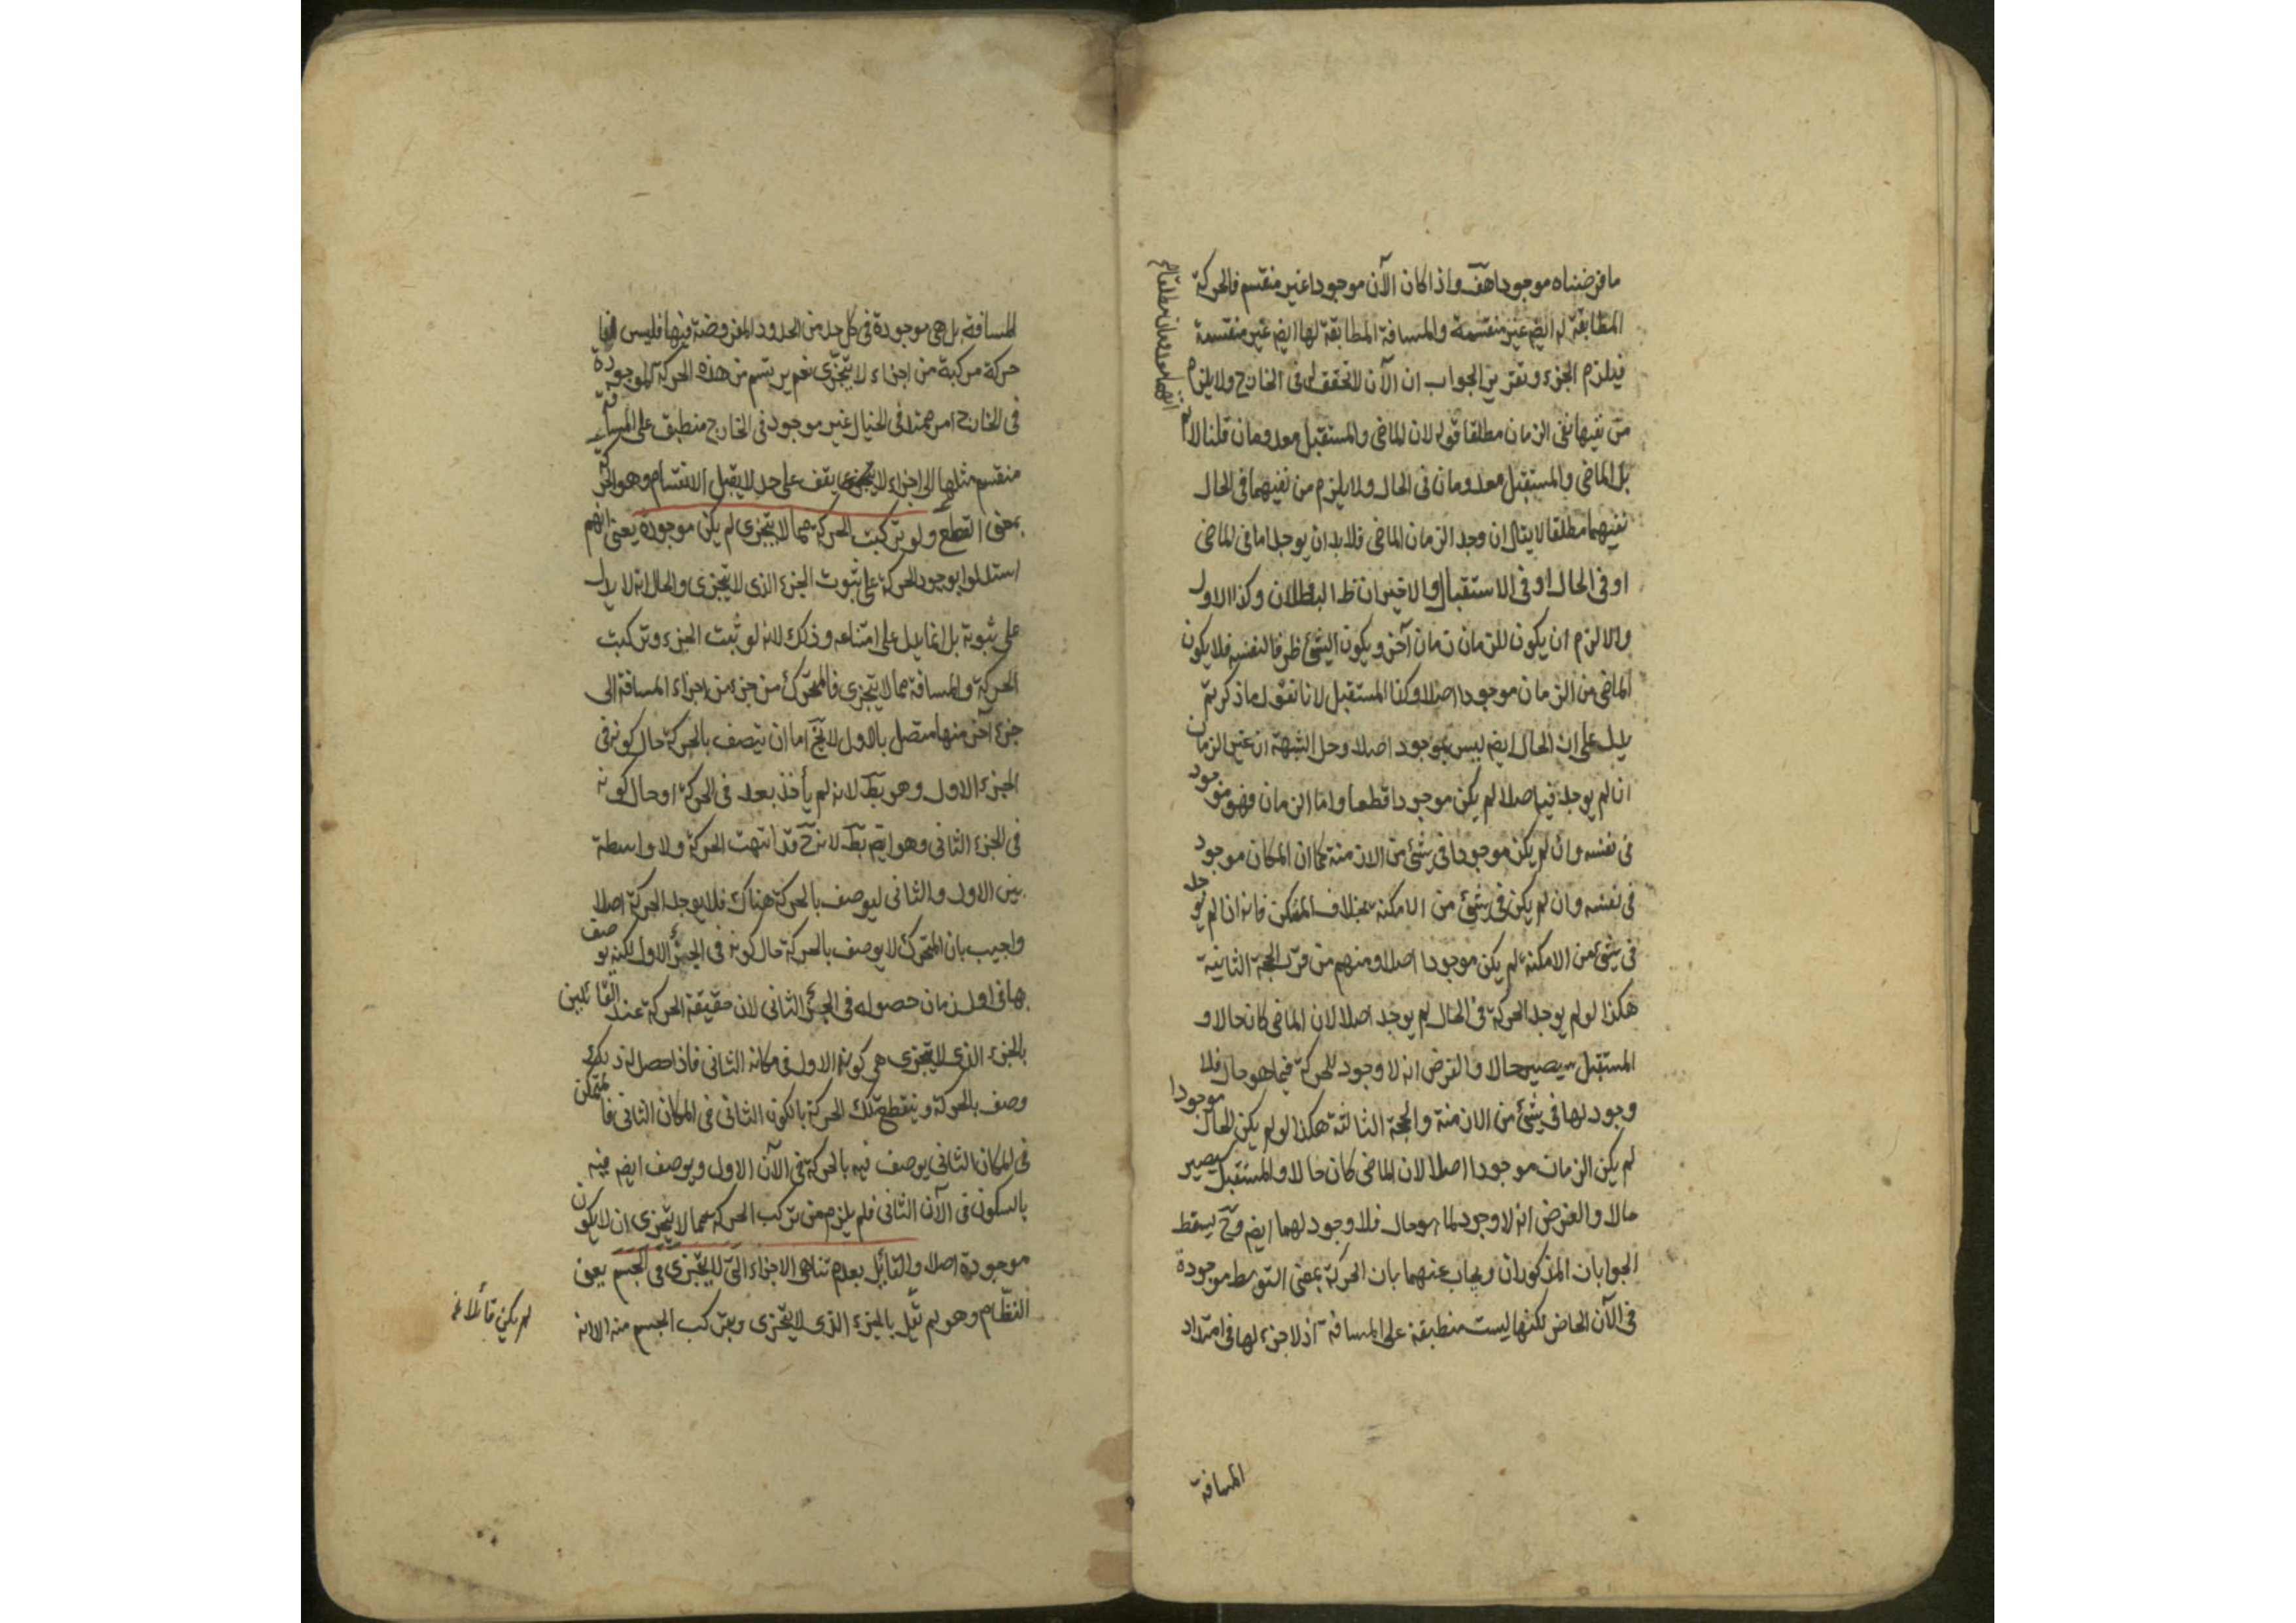 ما فرضناه موجودا هف واذا كان الآن موجودا غير منقسم فالحركة
المطابقة له ايضم غير منقسمة والمسافة المطابقة لها ايضم غير منقسمة
فيلزم الجزء وتقرير الجواب ان الآن لا تحقق له فى الخارج ولا يلزم
من نفيها نفى الزمان مطلقا قوله لان الماضى والمستقبل معدومان قلنا لانم
انهما معدومان مطلقا
بل الماضى والمستقبل معدومان فى الحال ولا يلزم من نفيهما فى الحال
نفيهما مطلقا لا يقال ان وجد الزمان الماضى فلا بد ان يوجد اما فى الماضى
او فى الحال او فى الاستقبال والاخيران ظ البطلان وكذا الاول
والا لزم ان يكون للزمان زمان آخر ويكون الشئ ظرفا لنفسه فلا يكون
الماضى من الزمان موجودا اصلا وكذا المستقبل لانا نقول ما ذكرتم
يدل على ان الحال ايضم ليس بموجود اصلا وحل الشبهة ان غير الزمان
ان لم يوجد فيه اصلا لم يكن موجودا قطعا واما الزمان فهو موجود
فى نفسه وان لم يكن موجودا فى شئ من الازمنة كما ان المكان موجود
فى نفسه وان لم يكن فى شئ من الامكنة بخلاف المتمكن فانه ان لم يوجد
فى شئ من الامكنة لم يكن موجودا اصلا ومنهم من قرر الحجة الثانية
هكذا لو لم يوجد الحركة فى الحال لم يوجد اصلا لان الماضى كان حالا و
المستقبل سيصير حالا والفرض انه لا وجود للحركة فيما هو حال فلا
وجود لها فى شئ من الازمنة والحجة الثالثة هكذا لو لم يكن الحال موجودا
لم يكن الزمان موجودا اصلا لان الماضى كان حالا والمستقبل سيصير
حالا والفرض انه لا وجود لما هو حال فلا وجود لهما ايضم وح يسقط
الجوابان المذكوران ويجاب عنهما بان الحركة بمعنى التوسط موجودة
فى الآن الحاضر لكنها ليست منطبقة على المسافة اذ لا جزء لها فى امتداد
المسافة
المسافة بل هى موجودة فى كل حد من الحدود المفروضة فيها فليس
حركة مركبة من اجزاء لا يتجزى نعم يرتسم من هذه الحركة الموجودة
فى الخارج امر ممتد فى الخيال غير موجود فى الخارج منطبق على المسافة
منقسم مثلها الى اجزاء لا يقف على حد لا يقبل الانقسام وهو الحركة
بمعنى القطع ولو تركبت الحركة مما لا يتجزى لم يكن موجودة يعنى انهم
استدلوا بوجود الحركة على ثبوت الجزء الذى لا يتجزى والحال انه لا يدل
على ثبوته بل انما يدل على امتناعه وذلك لانه لو ثبت الجزء وتركبت
الحركة والمسافة مما لا يتجزى فالمتحرك من جزء من اجزاء المسافة الى
جزء آخر منها متصل بالاول لا يخ اما ان يتصف بالحركة حال كونه فى
الجزء الاول وهو بط لانه لم يأخذ بعد فى الحركة او حال كونه
فى الجزء الثانى وهو ايضم بط لانه ح قد انتهت الحركة ولا واسطة
بين الاول والثانى ليوصف بالحركة هناك فلا يوجد الحركة اصلا
واجيب بان المتحرك لا يوصف بالحركة حال كونه فى الجزء الاول لكنه يوصف
بها فى اول زمان حصوله فى الجزء الثانى لان حقيقة الحركة عند القائلين
بالجزء الذى لا يتجزى هى كونه الاول فى مكانه الثانى فاذا حصل له ذلك
وصف بالحركة وينقطع تلك الحركة بالكون الثانى فى المكان الثانى فالمتمكن
فى المكان الثانى يوصف فيه بالحركة فى الآن الاول ويوصف ايضم فيه
بالسكون فى الآن الثانى فلم يلزم من تركب الحركة مما لا يتجزى ان لا يكون
موجودة اصلا والقائل بعدم تناهى الاجزاء التى لا يتجزى فى الجسم يعنى
النظام وهو لم يقل بالجزء الذى لا يتجزى وبتركب الجسم منه الا انه
لم يكن قائلا